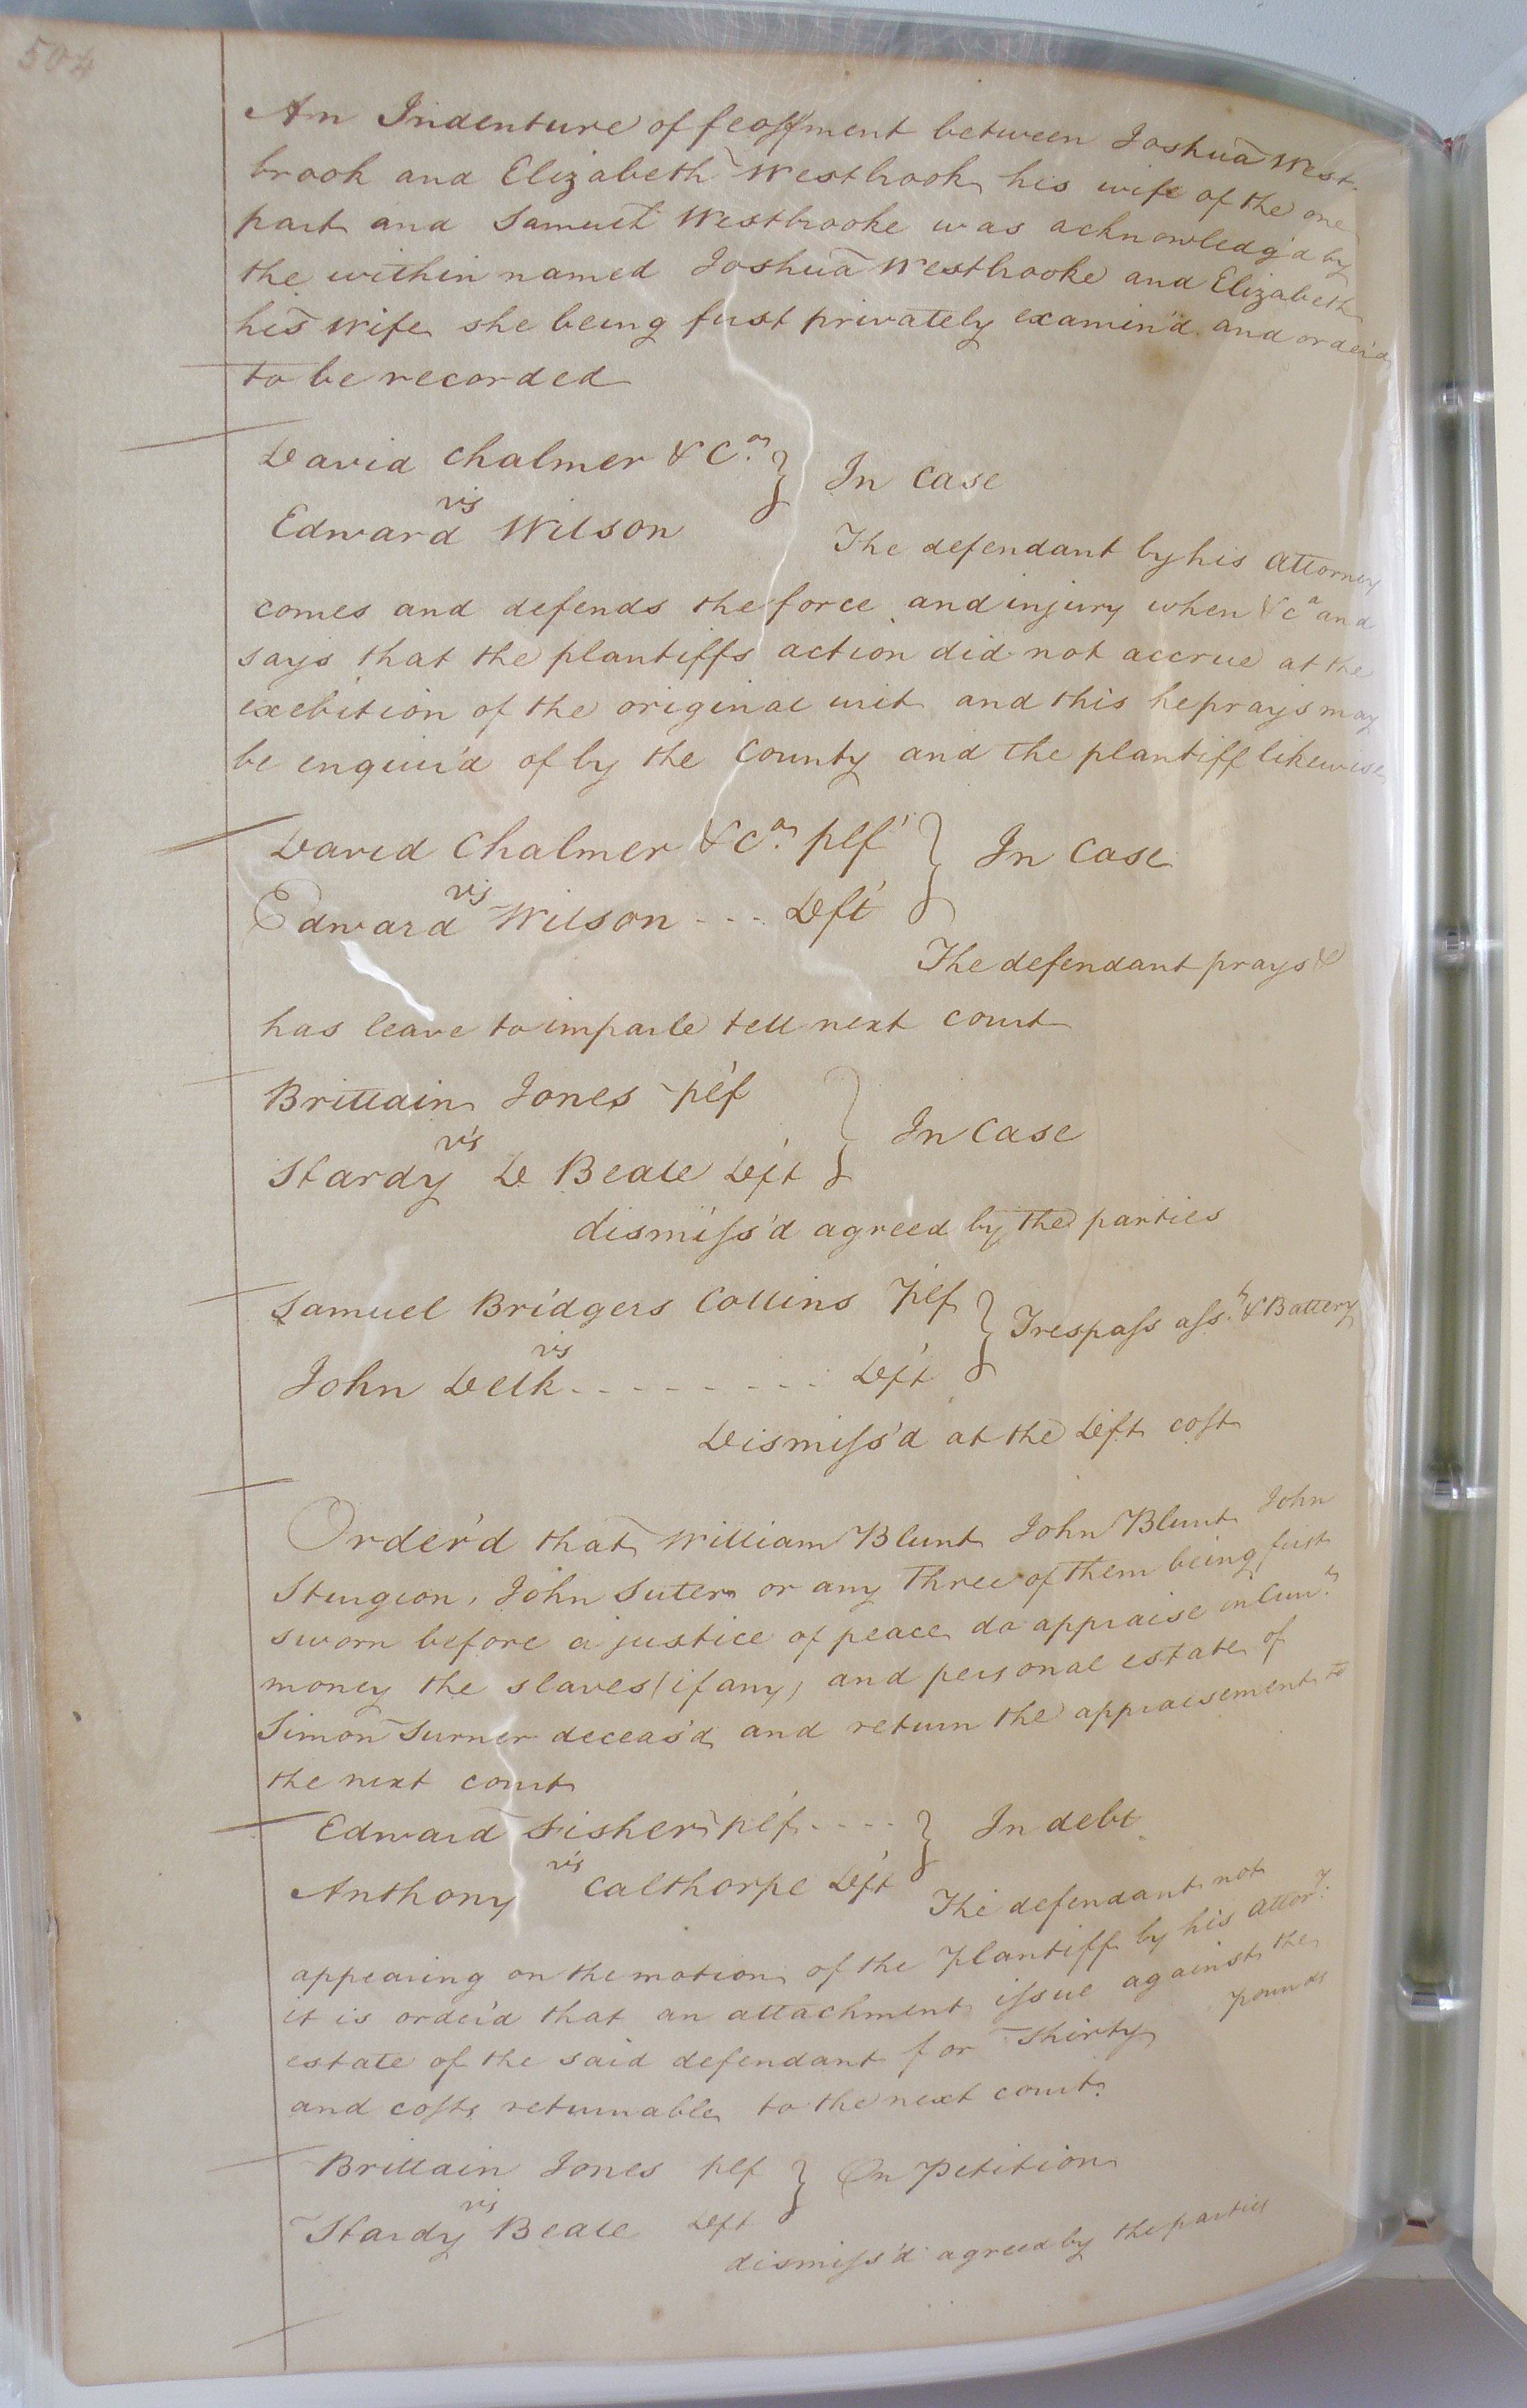 504
An Indenture of feoffment between Joshua West-
brook and Elizabeth Westbrook his wife of the one
part and Samuel Westbrooke was acknowledg'd by
the within named Joshua Westbrooke and Elizabeth
his wife she being first privately examin'd and order'd
to be recorded
David Chalmer & Co. } In Case
vs
Edward Wilson
The defendant by his attorney
comes and defends the force and injury when &ca and
says that the plantiffs action did not accrue at the
exebition of the original writ and this he prays may
be enquir'd of by the County and the plantiff likewise
David Chalmer & Co. plf } In Case
vs
Edward Wilson --- Deft
The defendant prays &
has leave to imparle tell next court
Brittain Jones plf } In Case
vs
Hardy D Beale Deft
dismiss'd agreed by the parties
Samuel Bridgers Collins plf } Trespass asst. & Battery
vs
John Delk --------- Deft
Dismiss'd at the Deft cost
Order'd that William Blunt John Blunt John
Sturgeon, John Suter or any Three of them being first
sworn before a justice of peace do appraise in Curt.
money the slaves (if any) and personal estate of
Simon Turner deceas'd and return the appraisement to
the next court
Edward Fisher plf ---- } In debt
vs
Anthony Calthorpe Deft
The defendant not
appearing on the motion of the plantiff by his attory:
it is order'd that an attachment issue against the
estate of the said defendant for Thirty pounds
and costs returnable to the next court.
Brittain Jones plf } On Petition
vs
Hardy Beale Deft
dismiss'd agreed by the parties